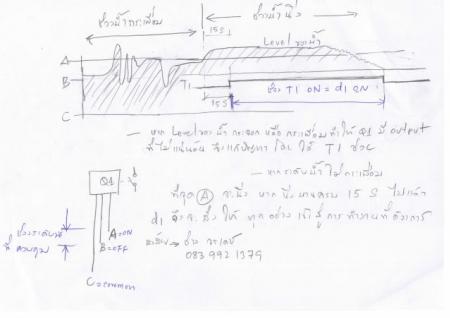 ช่วงน้ำกระเพื่อม
ช่วงน้ำนิ่ง
15S
Level ของน้ำ
A
B
T1
ช่วง T1 ON = d1 ON
15S
C
— หาก Level ของน้ำ กระฉอก หรือ กระเพื่อม ทำให้ Q1 มี output
ที่ไม่แน่นอน จะแก้ปัญหา โดย ใช้ T1 ช่วย
— หากระดับน้ำ ไม่กระเพื่อม
Q1
ที่จุด A จะนิ่ง หาก นิ่งนานครบ 15 S ไปแล้ว
ช่วงระดับน้ำ
ที่ควบคุม
A=ON
B=OFF
d1 จึงจะ สั่ง ให้ ทุกอย่าง เข้าสู่ การทำงานที่ต้องการ
083 992 1379
C=common